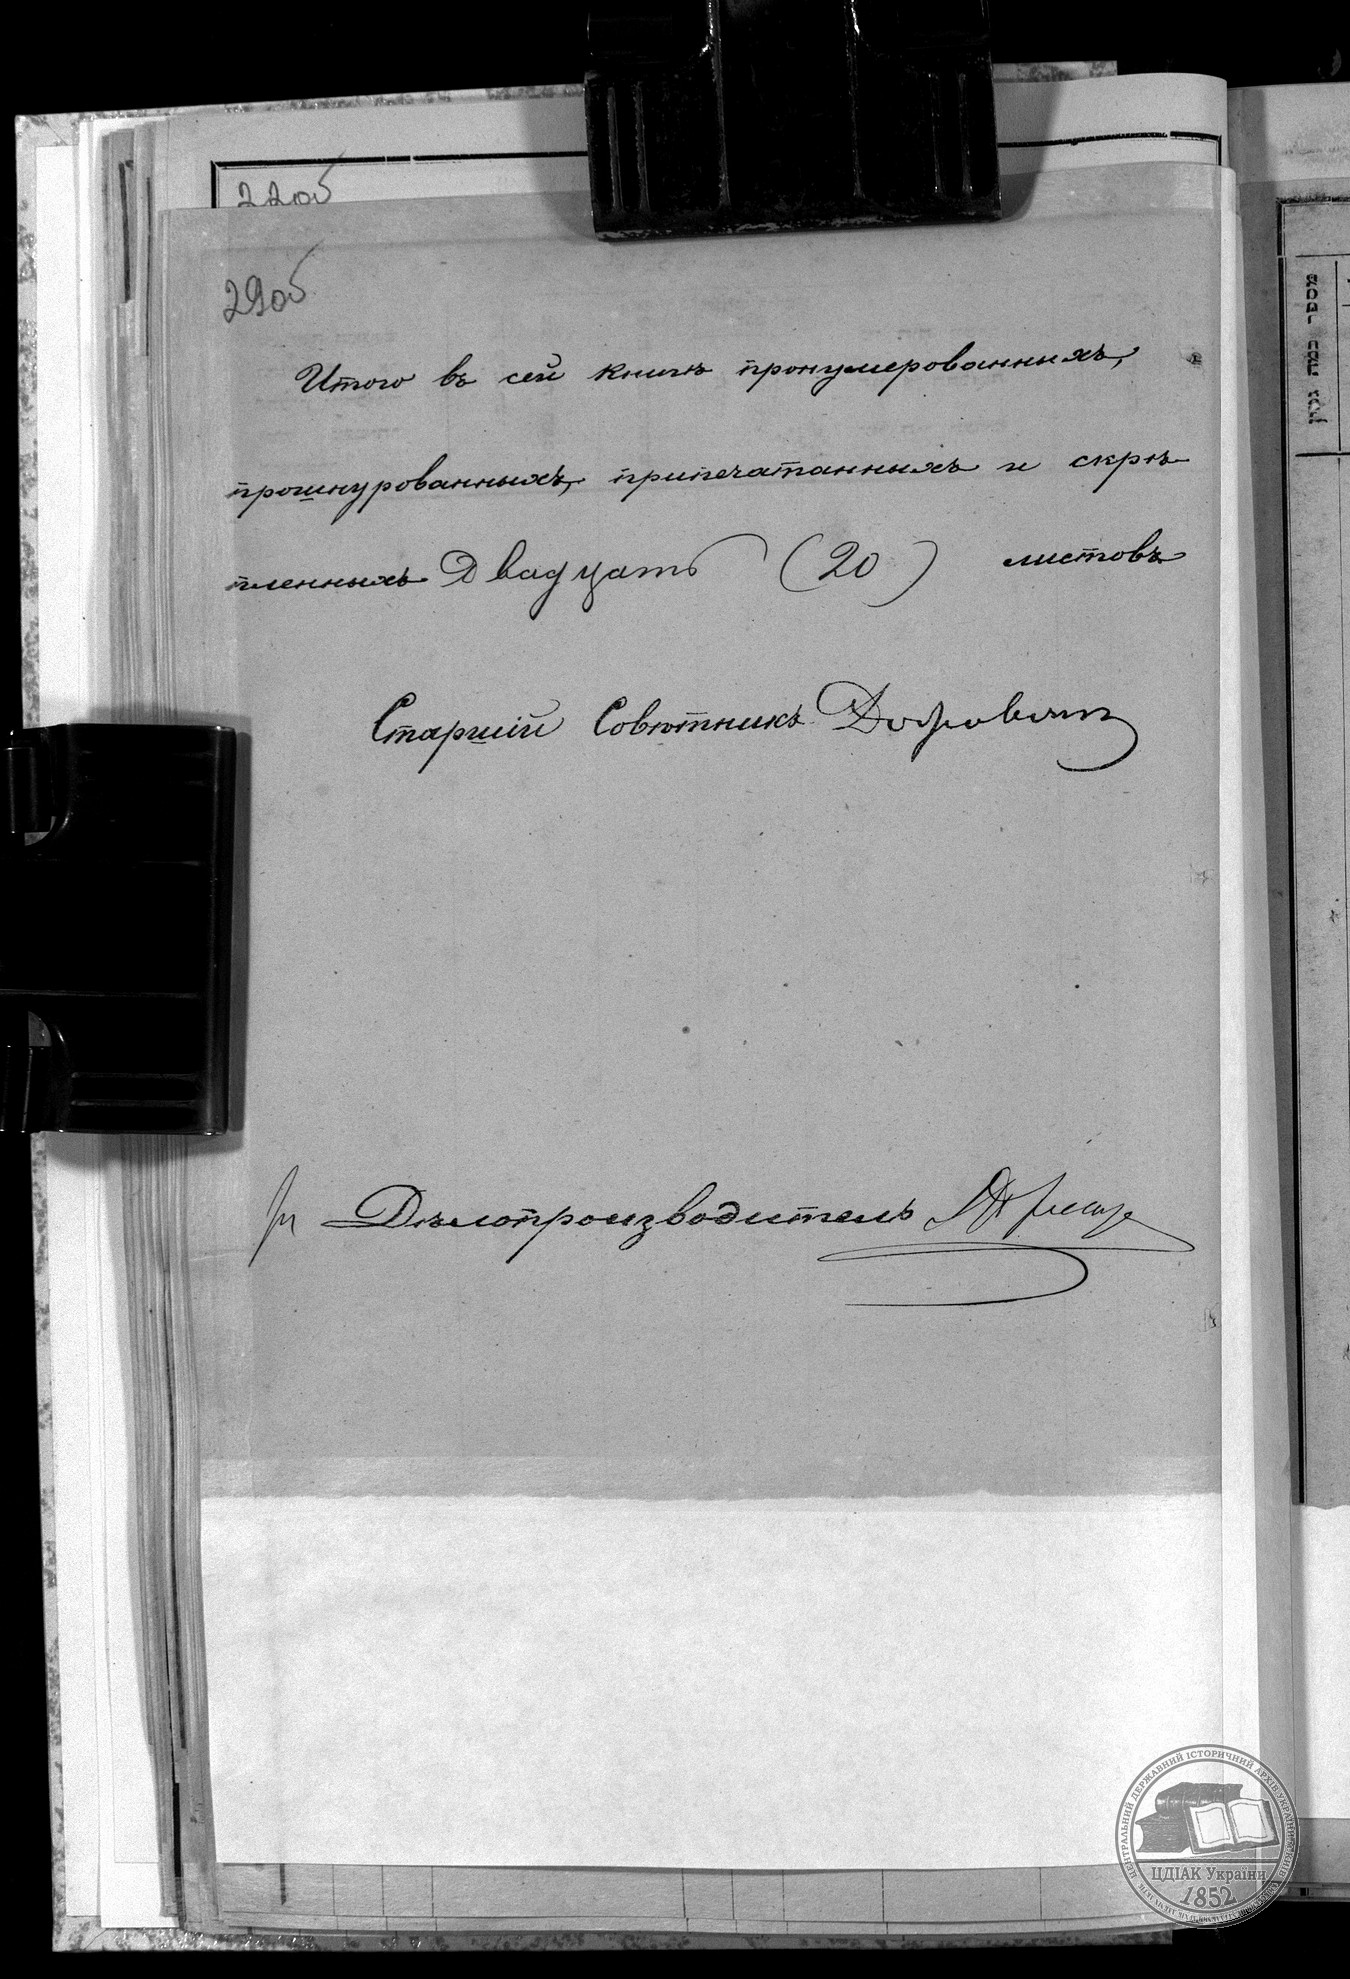 22об
29об
Итого въ сей книгѣ пронумерованныхъ,
прошнурованныхъ, припечатанныхъ и скрѣ
пленныхъ Двадцать (20) листовъ
Старшій Совѣтникъ
Дѣлопроизводитель
מספר כמה נולדו
ЦЕНТРАЛЬНИЙ ДЕРЖАВНИЙ ІСТОРИЧНИЙ АРХІВ УКРАЇНИ
ЦДІАК України
1852